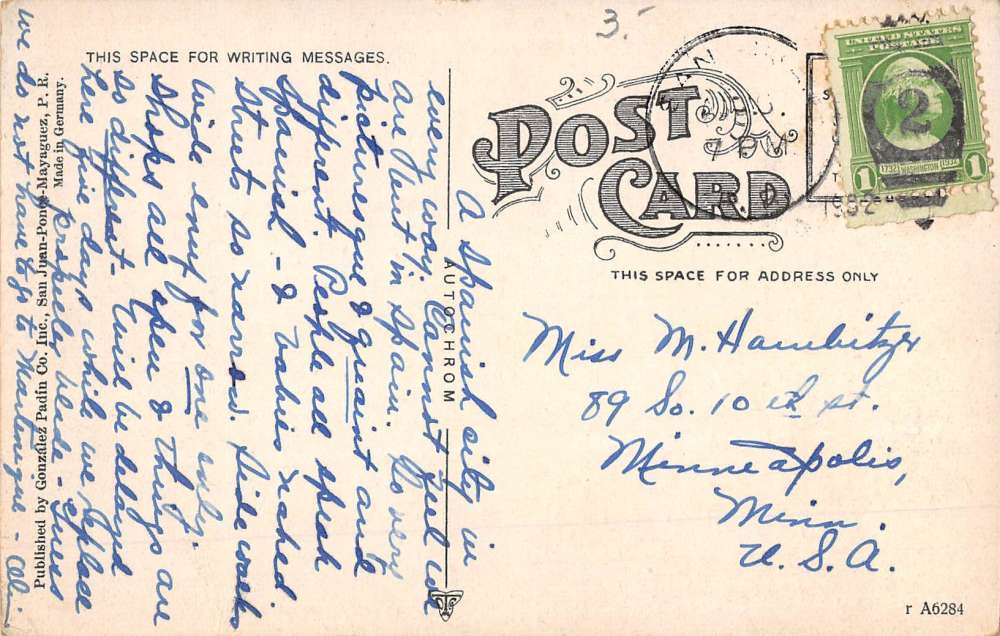 3.-
THIS SPACE FOR WRITING MESSAGES.
POST
CARD
THIS SPACE FOR ADDRESS ONLY
JAN
7 PM
P.R.
1932
2
UNITED STATES
POSTAGE
1732 WASHINGTON 1932
1 1
AUTOCHROM
Published by González Padín Co., Inc., San Juan-Ponce-Mayaguez, P. R.
Made in Germany.
A Spanish city in
every way. Cannot feel we
are not in Spain. So very
picturesque & quaint and
different. People all speak
Spanish - & babies naked
streets so narrow. Side walks
wide enuf for one only.
Shops all open & things are
so different - Will be delayed
here five days while we replace
propeller blade - Guess
we do not have to go to Martinique -
Miss M. Hambitzer
89 So. 10 th St.
Minneapolis,
Minn.
U.S.A.
r A6284